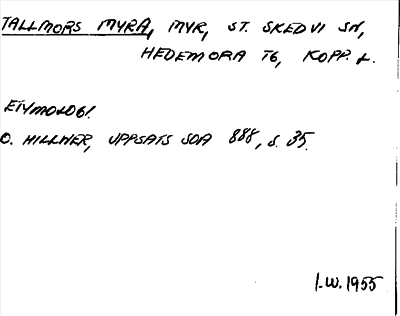 TALLMORS MYRA, MYR, ST. SKEDVI SN,
HEDEMORA TG, KOPP. L.
ETYMOLOGI.
O. HILLNER, UPPSATS SOA 888, S. 35.
I.W. 1955